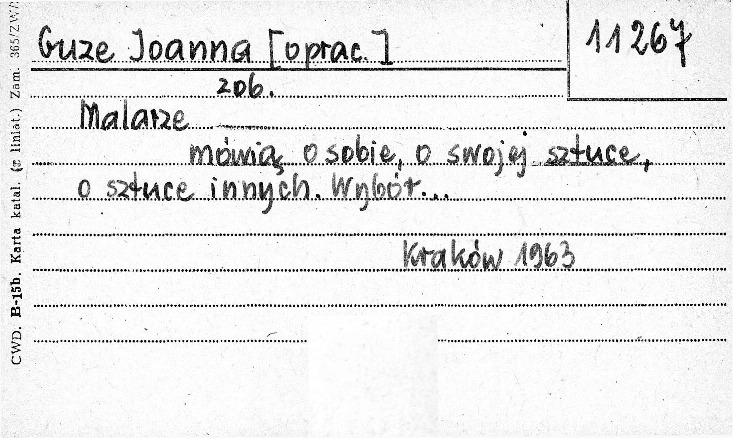 Guze Joanna [oprac.]
11267
zob.
Malarze
mówią o sobie, o swojej sztuce,
o sztuce innych. Wybór...
Kraków 1963
CWD. B-15b. Karta katal. (z liniat.) Zam. 365/ZW/